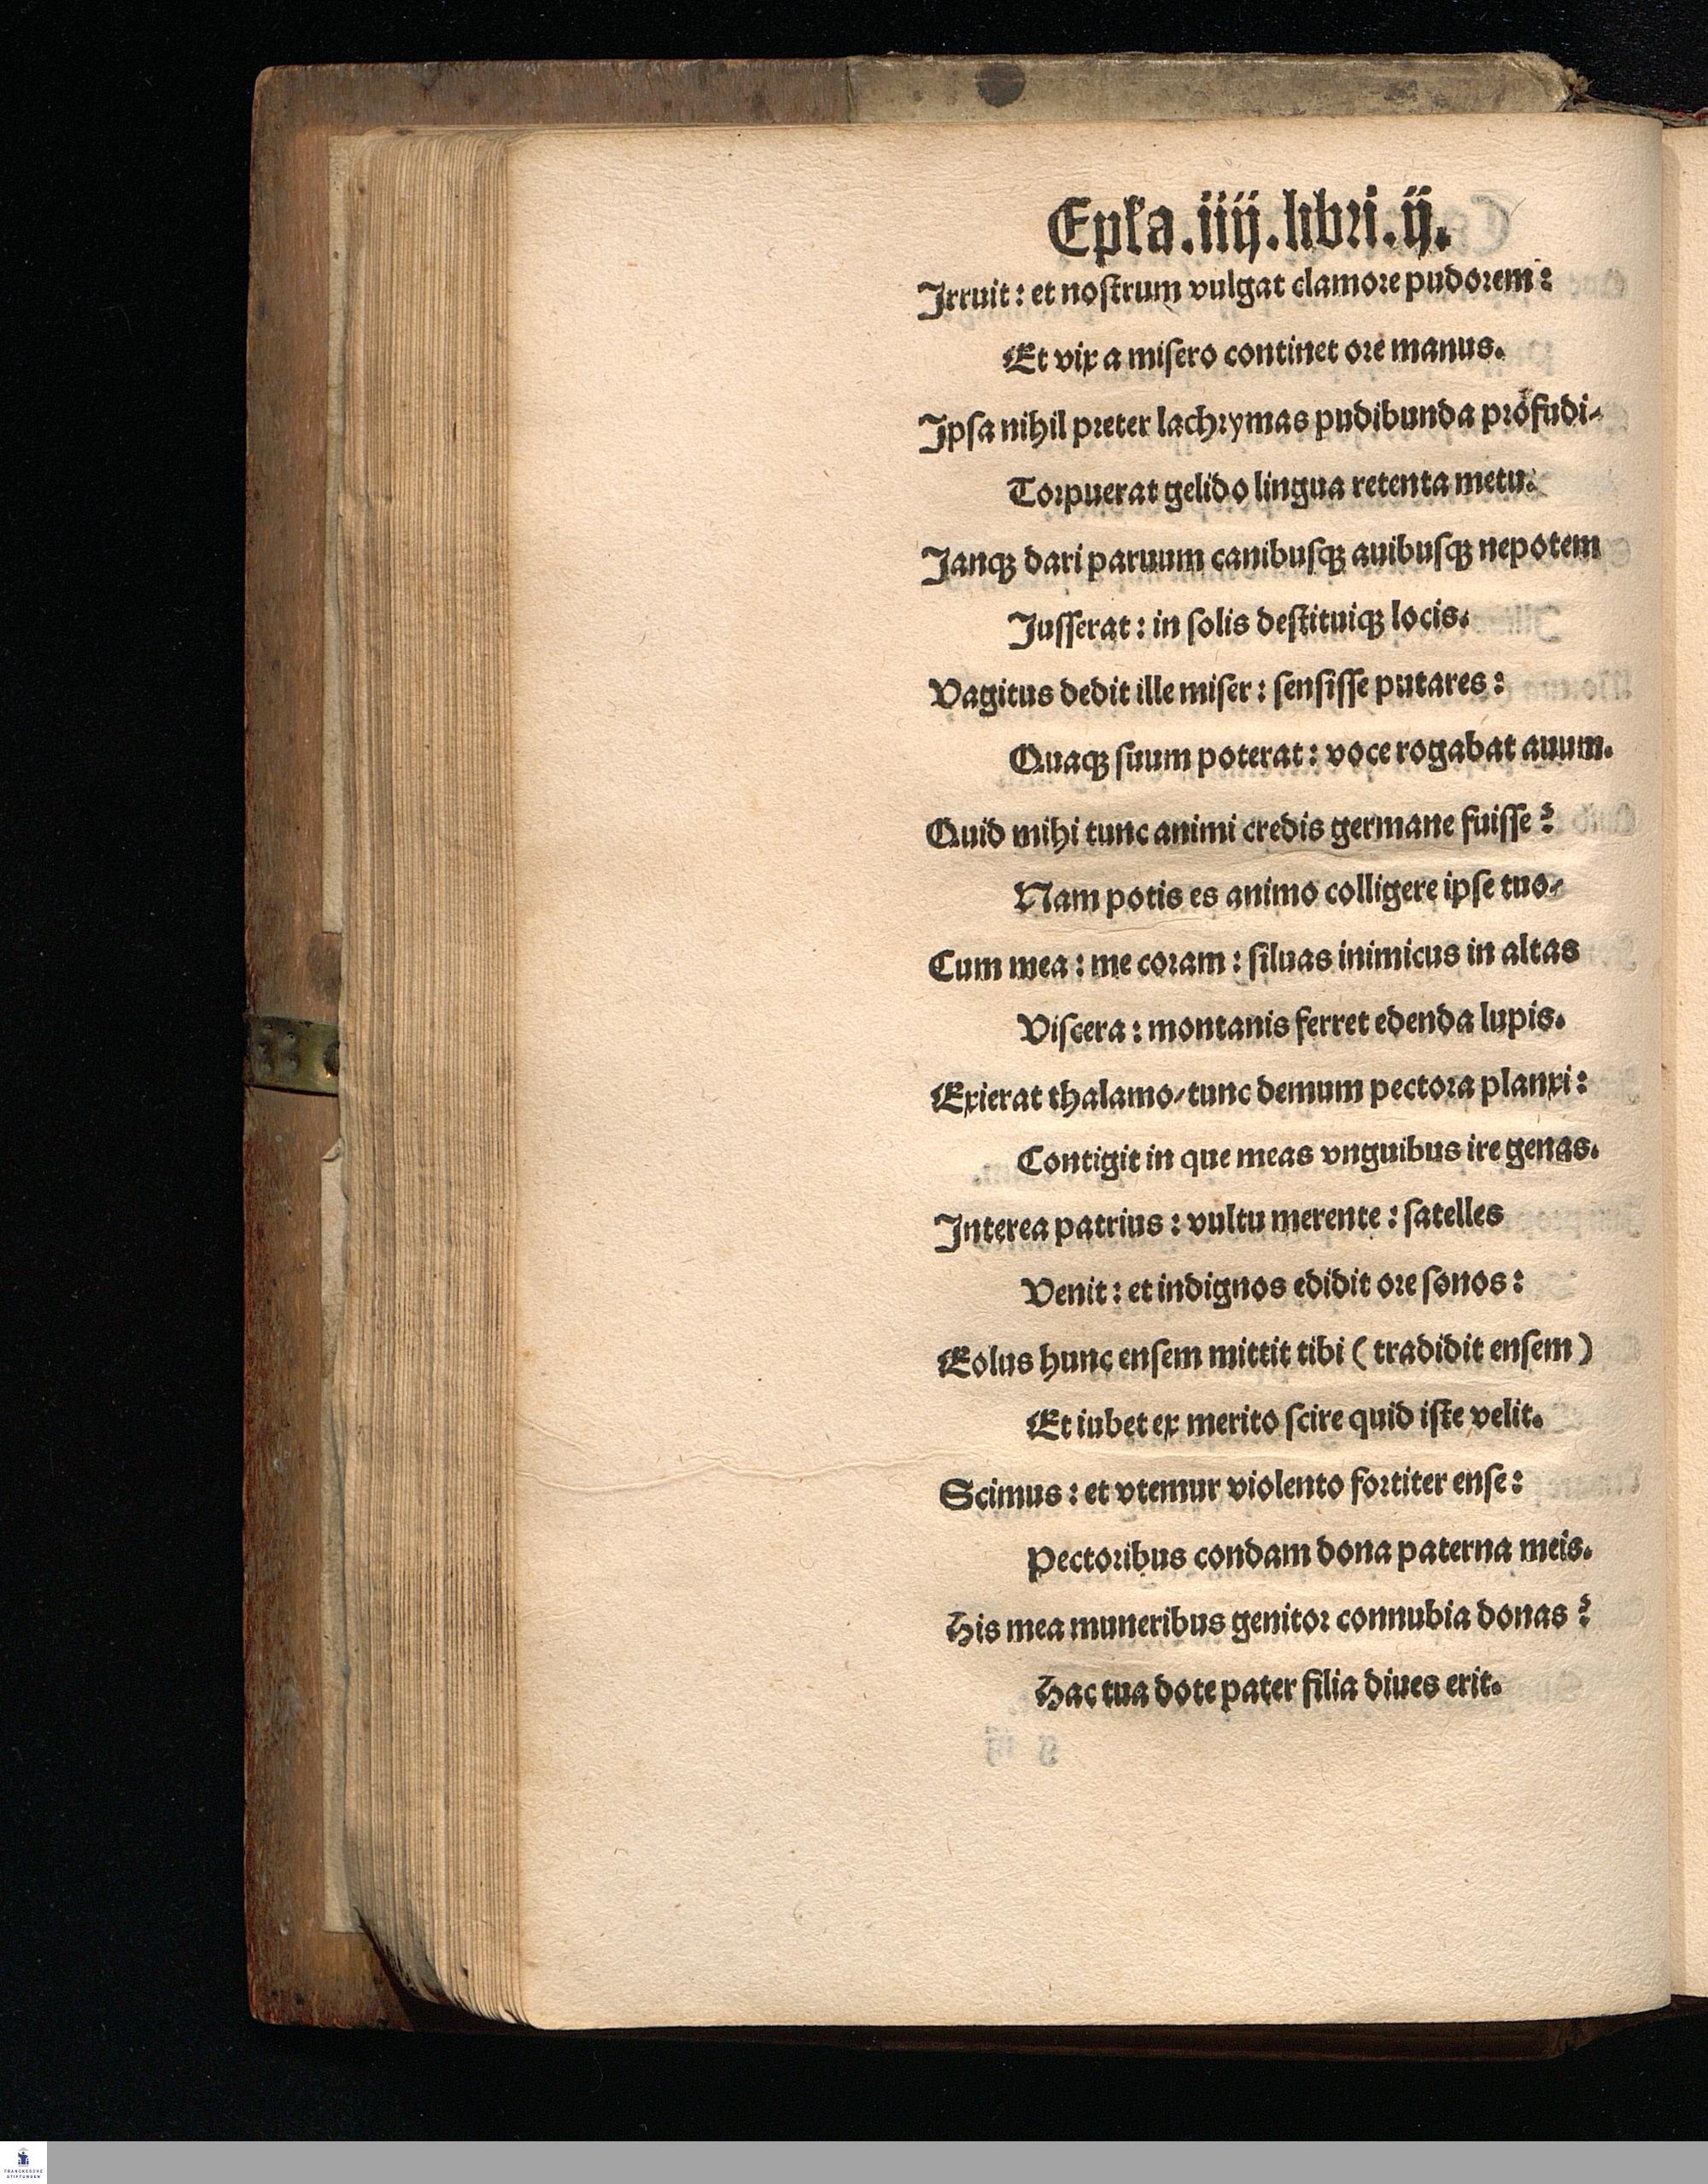 Epl̄a.iiij.libri.ij.
Irruit: et noſtrum vulgat clamore pudorem:
Et vix a miſero continet ore manus.
Ipſa nihil preter lachrymas pudibunda profudi/
Torpuerat gelido lingua retenta metu.
Janqꝫ dari paruum canibuſqꝫ auibuſqꝫ nepotem
Juſſerat: in ſolis deſtituiqꝫ locis.
Vagitus dedit ille miſer: ſenſiſſe putares:
Quaqꝫ ſuum poterat: voce rogabat auum.
Quid mihi tunc animi credis germane fuiſſe?
Nam potis es animo colligere ipſe tuo/
Cum mea: me coram: ſiluas inimicus in altas
Viſcera: montanis ferret edenda lupis.
Exierat thalamo/tunc demum pectora planxi:
Contigit in que meas vnguibus ire genas.
Interea patrius: vultu merente: ſatelles
Venit: et indignos edidit ore ſonos:
Eolus hunc enſem mittit tibi (tradidit enſem)
Et iubet ex merito ſcire quid iſte velit.
Scimus: et vtemur violento fortiter enſe:
Pectoribus condam dona paterna meis.
His mea muneribus genitor connubia donas?
Hac tua dote pater filia diues erit.
FRANCKESCHE
STIFTUNGEN